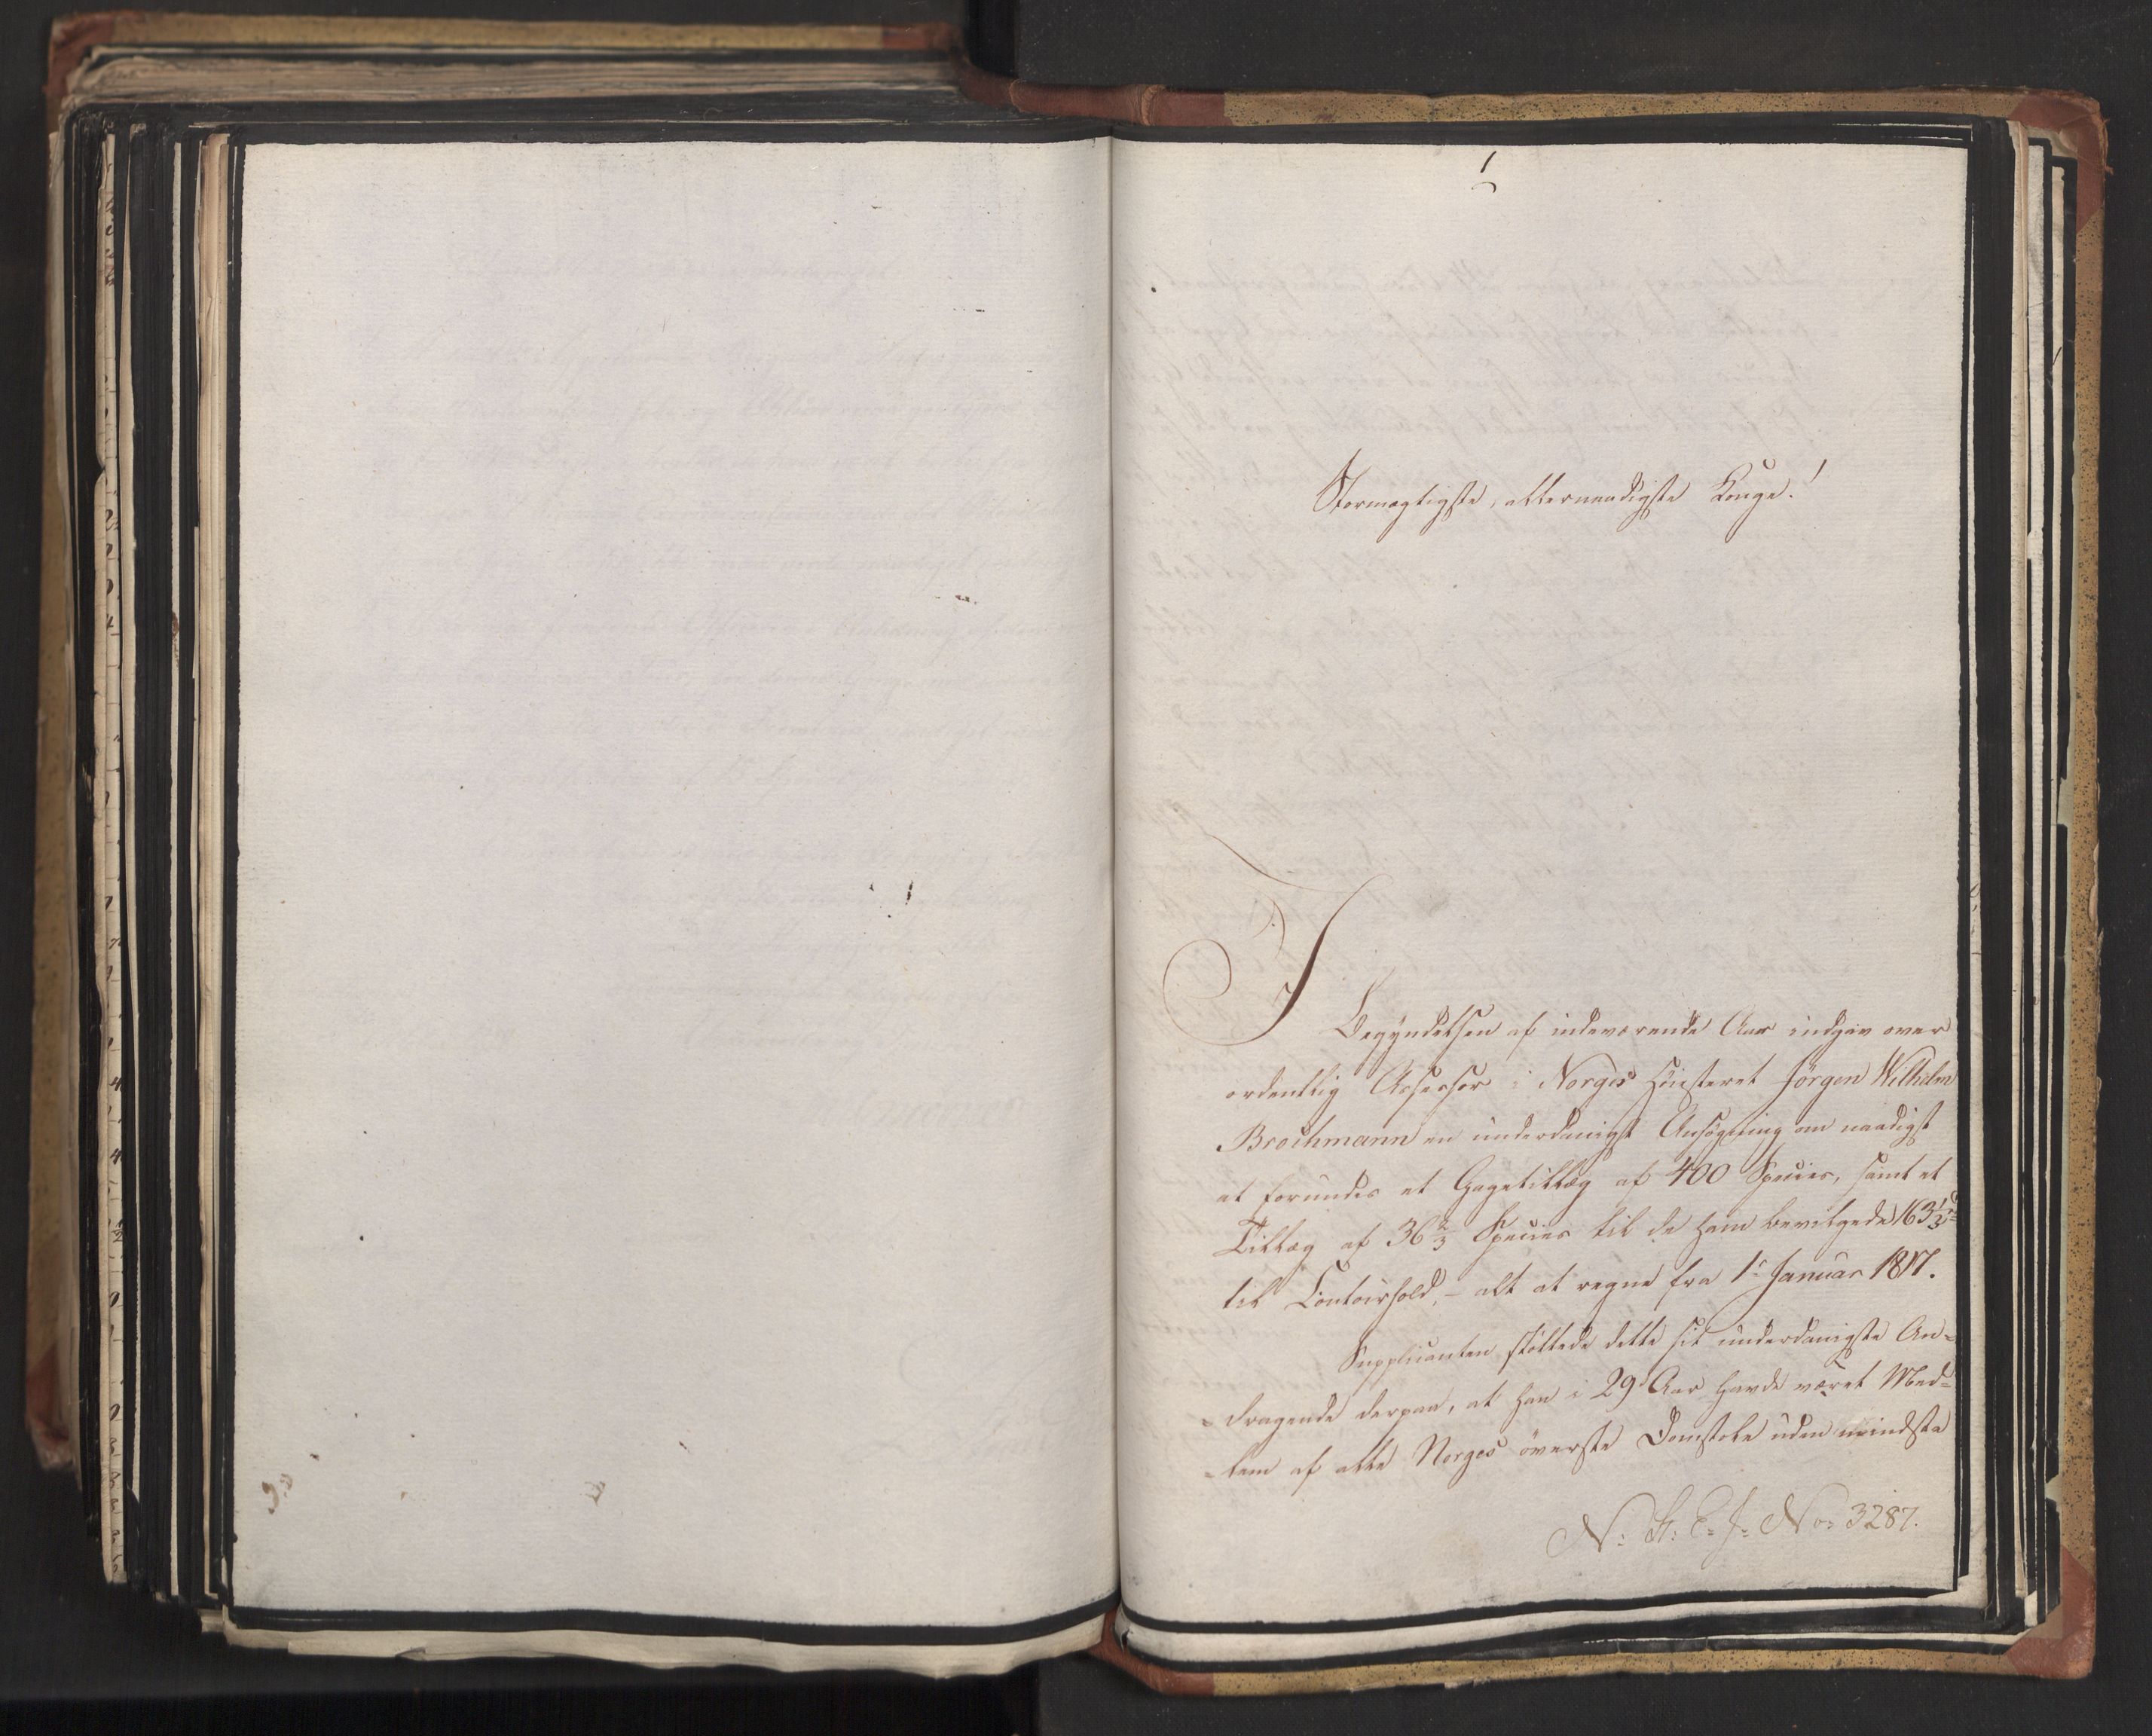 1
Stormægtigste, allernaadigste Konge!
I Begyndelsen af indeværende Aar indgav over
ordentlig Assessor i Norges Höiesteret Jörgen Wilhelm
Brochmann en underdanigst Ansögning om naadigst
at forundes et Gagetillæg af 400 Species, samt et
Tillæg af 36 2/3 Species til de ham bevilgede 163 1/3
til Contoirhold, - alt at regne fra 1e Januar 1817.
Supplicanten stöttede dette sit underdanigste An-
dragende derpaa, at han i 29 Aar havde været Med-
lem af alle Norges överste Domstole uden mindste
N: H: C: J: No: 3287.